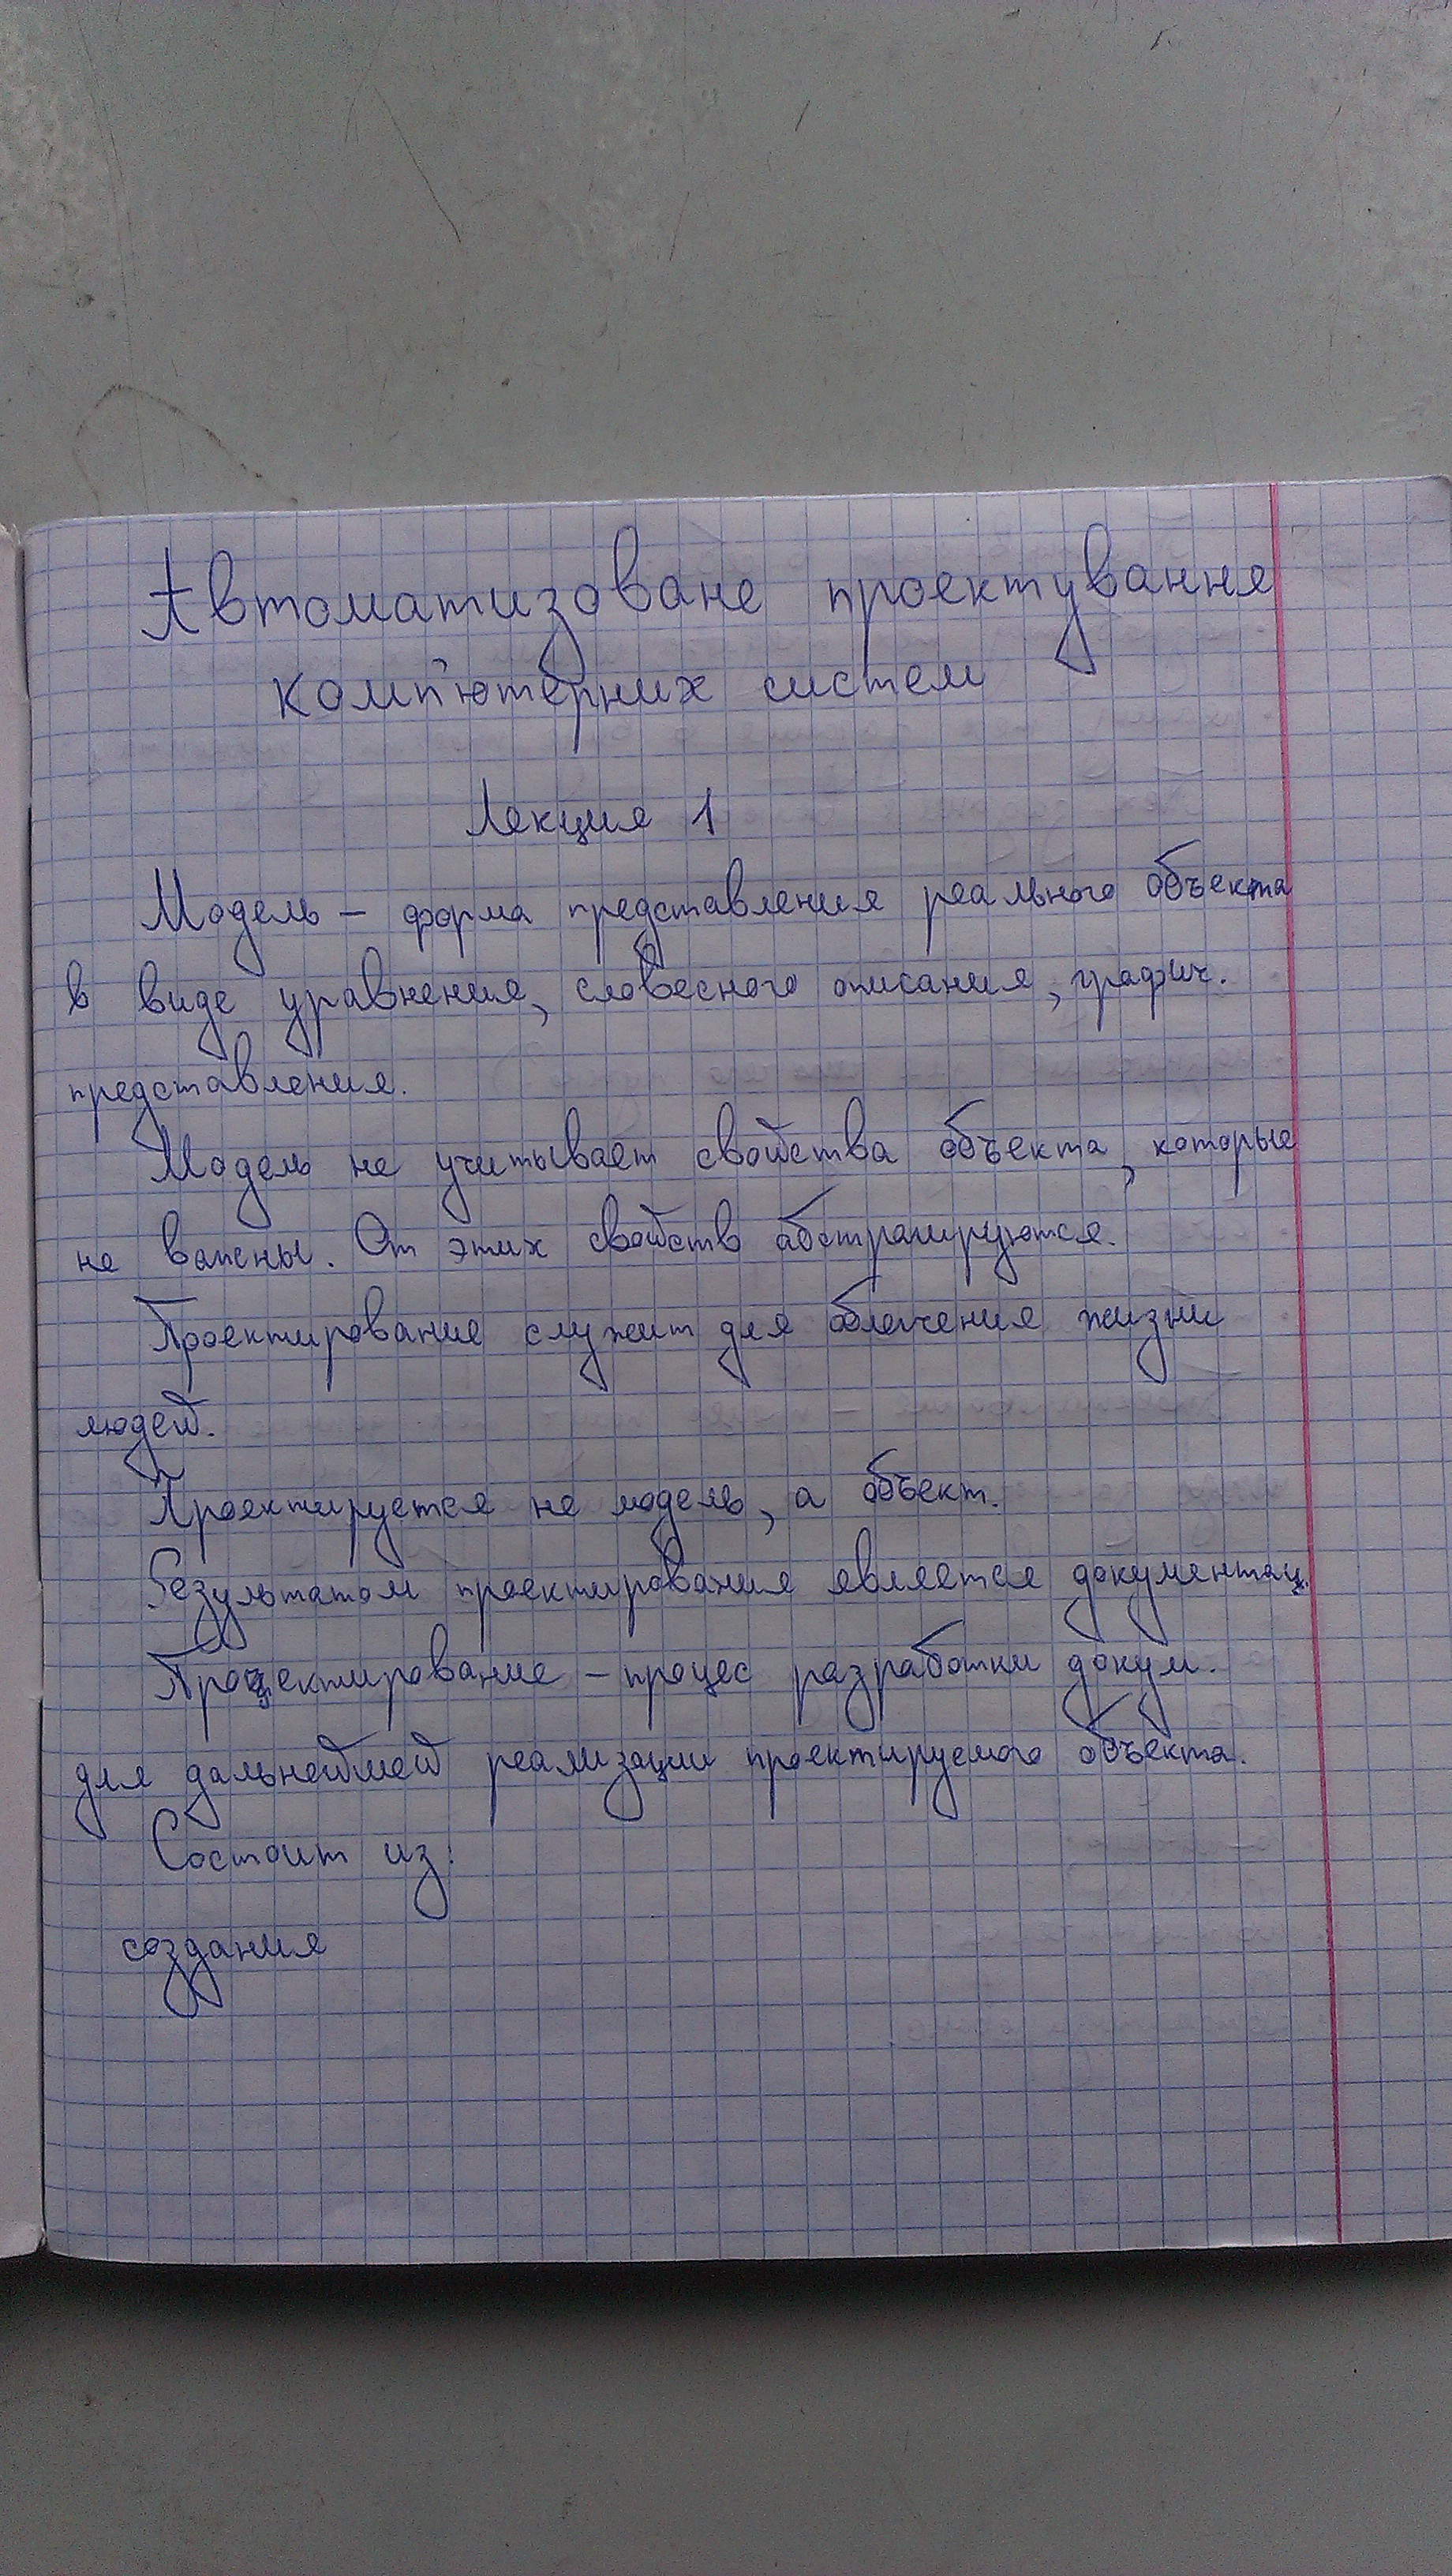 Автоматизоване проектування
комп'ютерних систем
Лекция 1
Модель – форма представления реального объекта
в виде уравнения, словесного описания, графич.
представления.
Модель не учитывает свойства объекта, которые
не важны. От этих свойств абстрагируются.
Проектирование служит для облегчения жизни
людей.
Проектируется не модель, а объект.
Результатом проектирования является документац.
Проектирование – процес разработки докум.
для дальнейшей реализации проектируемого объекта.
Состоит из:
создания